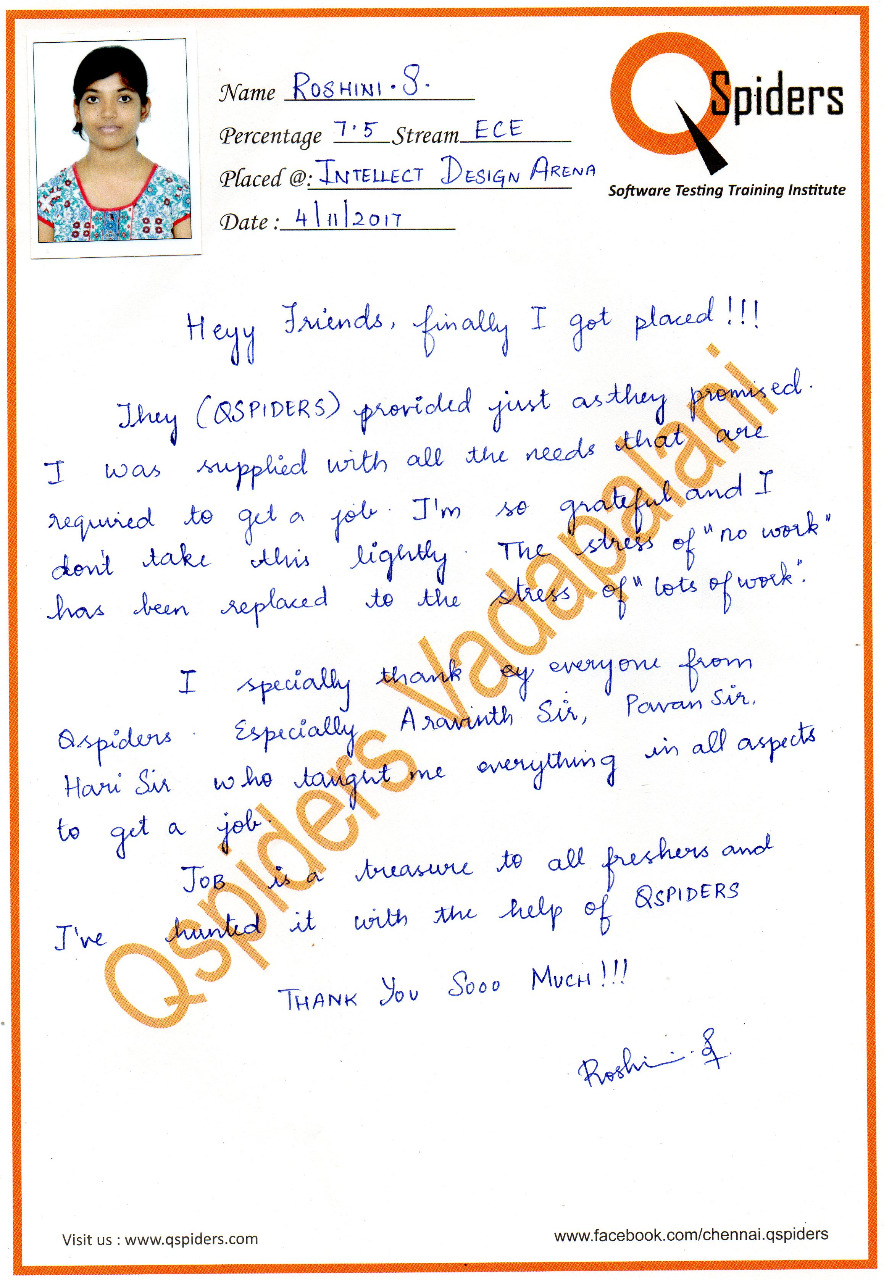 Name ROSHINI.S.
Percentage 7.5 Stream ECE
Placed @: INTELLECT DESIGN ARENA
Date : 4/11/2017
QSpiders
Software Testing Training Institute
Heyy Friends, finally I got placed!!!
They (QSPIDERS) provided just as they promised.
I was supplied with all the needs that are
required to get a job. I'm so grateful and I
don't take this lightly. The stress of "no work"
has been replaced to the stress of "lots of work".
I specially thank ey everyone from
Qspiders. Especially Aravinth Sir, Pavan Sir,
Hari Sir who taught me everything in all aspects
to get a job.
JOB is a treasure to all freshers and
I've hunted it with the help of QSPIDERS
THANK YOU SOOO MUCH!!!
Roshini.S
Qspiders Vadapalani
Visit us : www.qspiders.com
www.facebook.com/chennai.qspiders